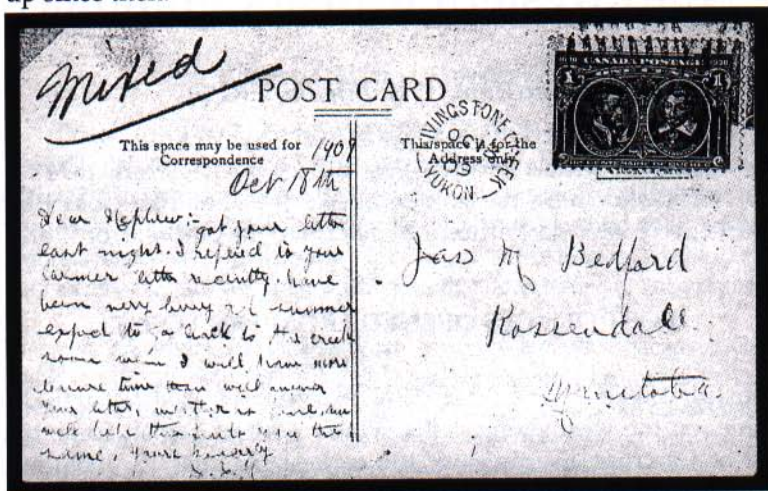 up since then.
Mixed
POST CARD
This space may be used for
Correspondence
This space is for the
Address only
LIVINGSTONE CREEK
OC
09
YUKON
CANADA POSTAGE
1 1
1909
Oct 18th
Dear Nephew:- got your letter
last night. I replied to your
former letter recently. have
been very busy all summer
expect to go back to the creek
soon when I will have more
leisure time then will answer
your letter, weather is fine, am
well hope this finds you the
same, yours sincerely
Jas M Bedford
Rossendale
Manitoba